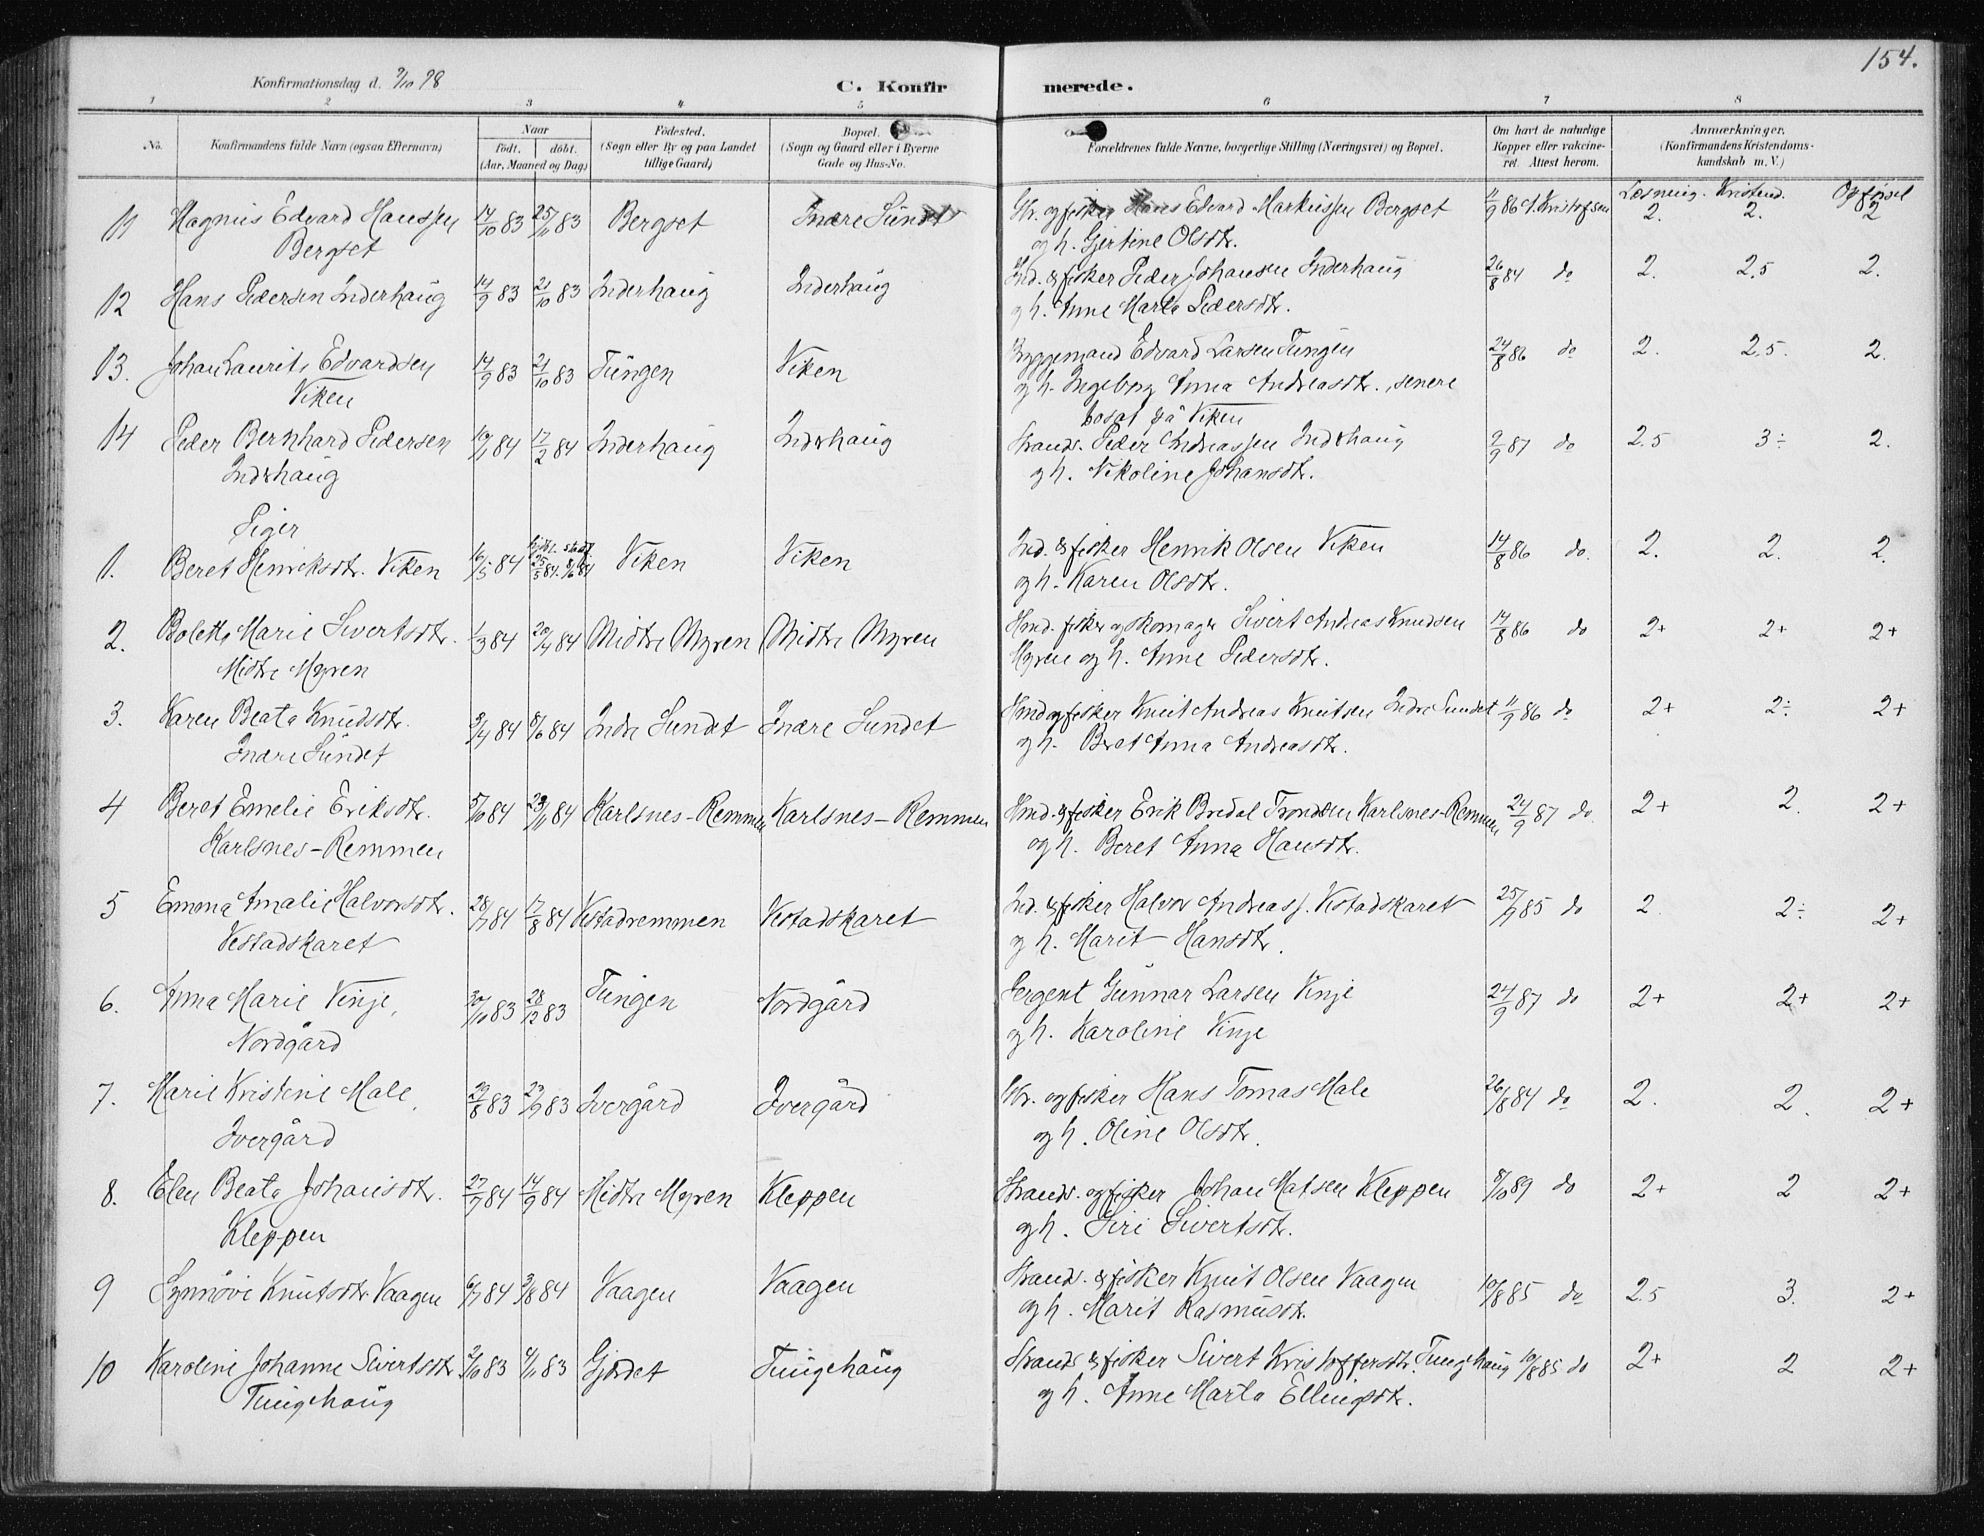 154.
Konfirmationsdag d. 9/10 98 C. Konfirmerede.
1 2 3 4 5 6 7 8
No. Konfirmandens fulde Navn (ogsaa Efternavn) Naar født. døbt. (Aar, Maaned og Dag) Fødested. (Sogn eller By og paa Landet tillige Gaard) Bopæl. (Sogn og Gaard eller i Byerne Gade og Hus-No. Forældrenes fulde Navne, borgerlige Stilling (Næringsvei) og Bopæl. Om havt de naturlige Kopper eller vaccineret. Attest herom. Anmærkninger. (Konfirmandens Kristendomskundskab m. V.)
Læsning. Kristend. Opførsel
11 Magnus Edvard Hanssen 14/10 83 25/11 83 Bergset Indre Sundet Gbr. og fisker Hans Edvard Markussen Bergset 11/9 86 A. Kristofsen 2. 2. 2
Bergset og h. Gjertine Olsdtr.
12 Hans Pedersen Inderhaug 14/9 83 21/10 83 Inderhaug Inderhaug Ind. & fisker Peder Johansen Inderhaug 26/8 84 do 2. 2.5 2.
og h. Anne Marta Pedersdtr.
13. Johan Laurits Edvardsen 14/9 83 21/10 83 Tungen Viken Byggemand Edvard Larsen Tungen 24/8 86 do 2. 2.5. 2.
Viken og h. Ingeborg Anna Andreasdtr., senere
bosat på Viken
14 Peder Bernhard Pedersen 19/1 84 17/2 84 Inderhaug Inderhaug Strands. Peder Andreassen Inderhaug 9/9 87 do 2.5 3÷ 2.
Inderhaug og h. Nikoline Johansdtr.
Piger
1. Beret Henriksdtr. Viken 16/5 84 25/5 84. 8/6 84 Viken Viken Ind. & fisker Henrik Olsen Viken 14/8 86 do. 2. 2. 2.
og h. Karen Olsdtr.
2. Bolette Marie Sivertsdtr. 1/3 84 20/4 84 Midtre Myren Midtre Myren Hmd. fisker og skomager Sivert Andreas Knudsen 14/8 86 do 2+ 2+ 2+
Midtre Myren Myren og h. Anne Pedersdtr.
3. Karen Beata Knudsdtr. 9/4 84 8/6 84 Indre Sundet Indre Sundet Hmd og fisker Knut Andreas Knutsen Indre Sundet 11/9 86 do 2+ 2÷ 2+
Indre Sundet og h. Beret Anna Andreasdtr.
4 Beret Emelie Eriksdtr. 5/10 84 23/11 84 Karlsnes-Remmen Karlsnes-Remmen Hmd. & fisker Erik Bredal Trondsen Karlsnes-Remmen 24/9 87 do. 2+ 2. 2+
Karlsnes-Remmen og h. Beret Anna Hansdtr.
5 Emma Amalie Halvorsdtr. 28/7 84 17/8 84 Vestadremmen Vestadskaret Ind. & fisker Halvor Andreass. Vestadskaret 25/9 85 do 2. 2÷ 2+
Vestadskaret og h. Marit Hansdtr.
6. Anna Marie Vinje, 20/10 83 28/12 83 Tungen Nordgård Sergent Gunnar Larsen Vinje 24/9 87 do 2+ 2+ 2+
Nordgård og h. Karoline Vinje
7. Marie Kristine Male, 29/8 83 23/9 83 Ivergård Ivergård Gbr. og fisker Hans Tomas Male 26/8 84 do 2. 2. 2+
Ivergård og h. Oline Olsdtr.
8. Elen Beata Johansdtr. 27/7 84 14/9 84 Midtre Myren Kleppen Strands. og fisker Johan Matsen Kleppen 8/10 89 do 2+ 2 2+
Kleppen og h. Siri Sivertsdtr.
9 Synnøve Knutsdtr. Vaagen 6/7 84 3/8 84 Vaagen Vaagen Strands. & fisker Knut Olsen Vaagen 10/8 85 do 2.5 3. 2+
og h. Marit Rasmusdtr.
10 Karoline Johanne Sivertsdtr. 2/10 83 4/11 83 Gjerdet Tungehaug Strands & fisker Sivert Kristoffersdtr. Tungehaug 10/8 85 do 2+ 2 2+
Tungehaug og h. Anne Marta Ellingsdtr.